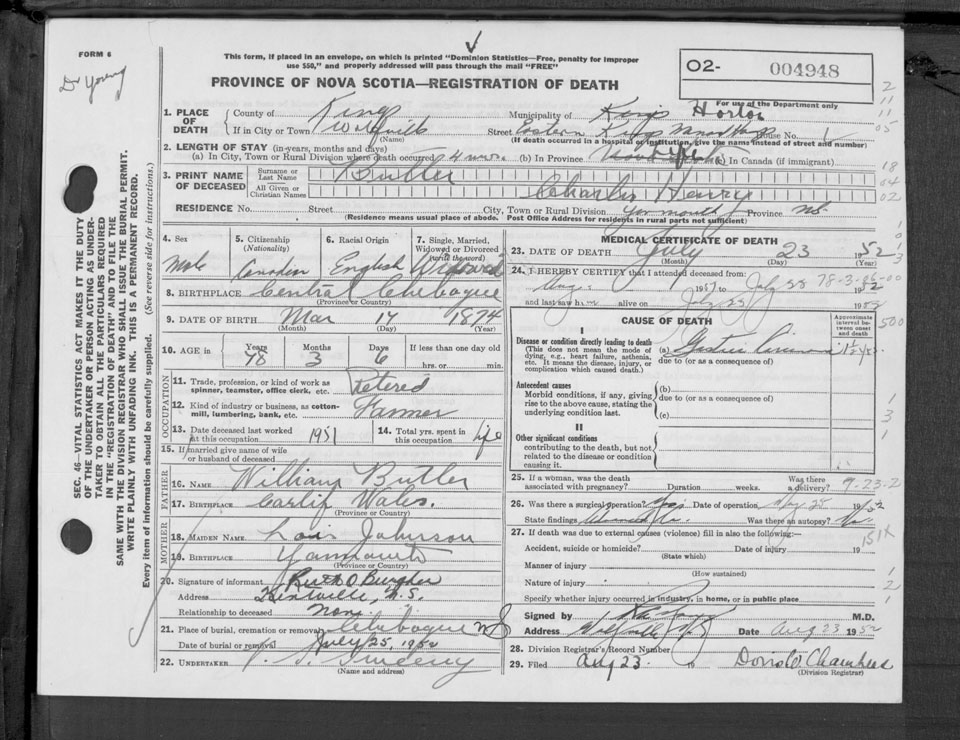 FORM 6
Dr Young
This form, if placed in an envelope, on which is printed "Dominion Statistics—Free, penalty for improper
use $50," and properly addressed will pass through the mail "FREE"
PROVINCE OF NOVA SCOTIA—REGISTRATION OF DEATH
O2- 004948
For use of the Department only
1. PLACE OF DEATH
County of Kings Municipality of Kings Horton
If in City or Town Wolfville (Name) Street Eastern Kings House No.
(If death occurred in a hospital or institution, give the name instead of street and number)
2. LENGTH OF STAY (in-years, months and days)
(a) In City, Town or Rural Division where death occurred 4 (b) In Province (c) In Canada (if immigrant)
3. PRINT NAME OF DECEASED
Surname or Last Name Butler
All Given or Christian Names Charles Henry
RESIDENCE No. Street City, Town or Rural Division Yarmouth Province NS.
(Residence means usual place of abode. Post Office Address for residents in rural parts not sufficient)
4. Sex 5. Citizenship (Nationality) 6. Racial Origin 7. Single, Married, Widowed or Divorced (write the word)
Male Canadian English Widowed
8. BIRTHPLACE Central Chebogue
(Province or Country)
9. DATE OF BIRTH Mar 17 1874
(Month) (Day) (Year)
10. AGE in Years Months Days If less than one day
78 3 6 hrs. or min.
OCCUPATION
11. Trade, profession, or kind of work as spinner, teamster, office clerk, etc. Retired
12. Kind of industry or business, as cotton-mill, lumbering, bank, etc. Farmer
13. Date deceased last worked at this occupation 1951 14. Total yrs. spent in this occupation life
15. If married give name of wife or husband of deceased
FATHER
16. NAME William Butler
17. BIRTHPLACE Wales.
(Province or Country)
MOTHER
18. MAIDEN NAME Johnson
19. BIRTHPLACE Yarmouth
(Province or Country)
20. Signature of informant Ruth O. Burgher
Address Kentville, N.S.
Relationship to deceased None.
21. Place of burial, cremation or removal Chebogue NS
Date of burial or removal July 25, 1952
22. UNDERTAKER
(Name and address)
MEDICAL CERTIFICATE OF DEATH
23. DATE OF DEATH July 23 1952
(Month) (Day) (Year)
24. I HEREBY CERTIFY that I attended deceased from:
Aug. 1951 to July 1952
and last saw him alive on July 1952
CAUSE OF DEATH
Approximate interval between onset and death
I
Disease or condition directly leading to death
(This does not mean the mode of dying, e.g., heart failure, asthma, etc. It means the disease, injury, or complication which caused death.)
(a)
due to (or as a consequence of)
Antecedent causes
Morbid conditions, if any, giving rise to the above cause, stating the underlying condition last.
(b)
due to (or as a consequence of)
(c)
II
Other significant conditions
contributing to the death, but not related to the disease or condition causing it.
25. If a woman, was the death associated with pregnancy? Duration weeks. Was there a delivery?
26. Was there a surgical operation? Date of operation May 1952
State findings Was there an autopsy? No
27. If death was due to external causes (violence) fill in also the following:—
Accident, suicide or homicide? Date of injury 19
(State which)
Manner of injury
(How sustained)
Nature of injury
Specify whether injury occurred in industry, in home, or in public place
Signed by M.D.
Address Wolfville N.S. Date Aug 23 1952
28. Division Registrar's Record Number
29. Filed Aug 23. Doris W. Chambers
(Division Registrar)
SEC. 46—VITAL STATISTICS ACT MAKES IT THE DUTY
OF THE UNDERTAKER OR PERSON ACTING AS UNDER-
TAKER TO OBTAIN ALL THE PARTICULARS REQUIRED
IN THE "REGISTRATION OF DEATH" AND TO FILE THE
SAME WITH THE DIVISION REGISTRAR WHO SHALL ISSUE THE BURIAL PERMIT.
WRITE PLAINLY WITH UNFADING INK. THIS IS A PERMANENT RECORD.
Every item of information should be carefully supplied. (See reverse side for instructions.)